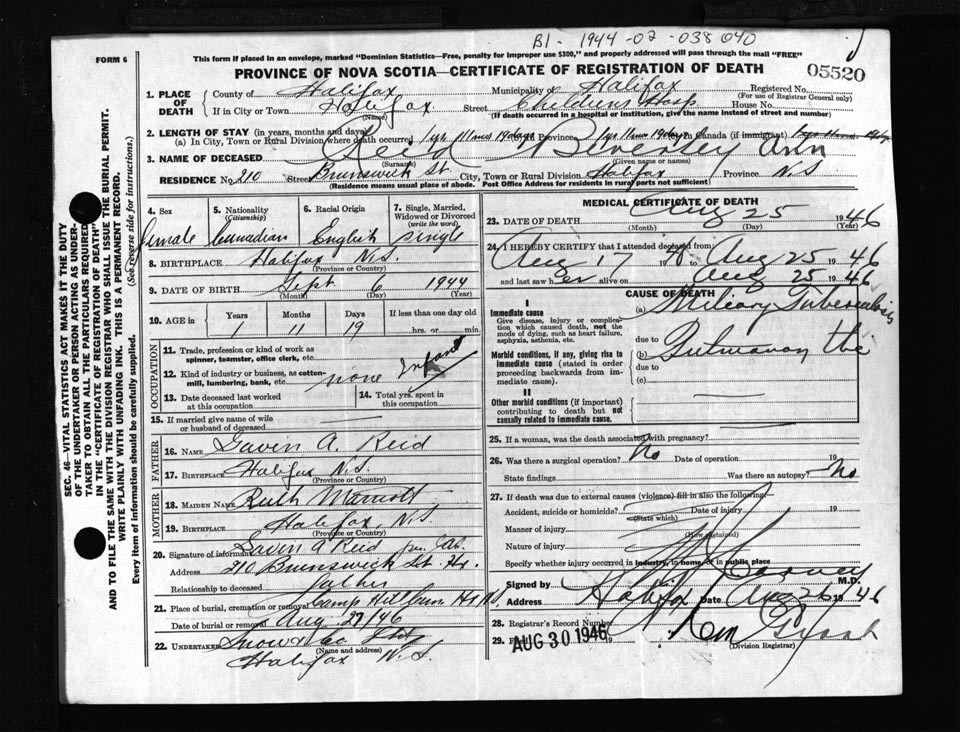 B1- 1944-02-038040
FORM 6
This form if placed in an envelope, marked "Dominion Statistics—Free, penalty for improper use $300," and properly addressed will pass through the mail "FREE"
PROVINCE OF NOVA SCOTIA—CERTIFICATE OF REGISTRATION OF DEATH
05520
1. PLACE OF DEATH
County of Halifax Municipality of Halifax Registered No.
(For use of Registrar General only)
If in City or Town Halifax Street Childrens Hosp House No.
(Name) (If death occurred in hospital or institution, give the name instead of street and number)
2. LENGTH OF STAY (in years, months and days)
(a) In City, Town or Rural Division where death occurred 1yr 11mos 19days Province 1yr 11mos 19days Canada (if immigrant)
3. NAME OF DECEASED Reid Beverley Ann
(Surname) (Given name or names)
RESIDENCE No. 210 Street Brunswick St. City, Town or Rural Division Halifax Province N.S
(Residence means usual place of abode. Post Office Address for residents in rural parts not sufficient)
4. Sex
female
5. Nationality (Citizenship)
Canadian
6. Racial Origin
English
7. Single, Married, Widowed or Divorced (write the word)
single
8. BIRTHPLACE Halifax N.S.
(Province or Country)
9. DATE OF BIRTH Sept 6 1944
(Month) (Day) (Year)
10. AGE in Years Months Days If less than one day old
1 11 19 hrs. or min.
OCCUPATION
11. Trade, profession or kind of work as spinner, teamster, office clerk, etc.
12. Kind of industry or business, as cotton-mill, lumbering, bank, etc. none Infant
13. Date deceased last worked at this occupation
14. Total yrs. spent in this occupation
15. If married give name of wife or husband of deceased
FATHER
16. NAME Gavin A. Reid
17. BIRTHPLACE Halifax N.S.
(Province or Country)
MOTHER
18. MAIDEN NAME Ruth Marriott
19. BIRTHPLACE Halifax, N.S.
(Province or Country)
20. Signature of informant Gavin A Reid
Address 210 Brunswick St. Hx.
Relationship to deceased father
21. Place of burial, cremation or removal Camp Hill
Date of burial or removal Aug 27/46
22. UNDERTAKER Snow & Co
(Name and address)
Halifax N.S.
MEDICAL CERTIFICATE OF DEATH
23. DATE OF DEATH Aug 25 1946
(Month) (Day) (Year)
24. I HEREBY CERTIFY that I attended deceased from:
Aug 17 19 to Aug 25 1946
and last saw her alive on Aug 25 1946
CAUSE OF DEATH
I
Immediate cause
Give disease, injury or complication which caused death, not the mode of dying, such as heart failure, asphyxia, asthenia, etc.
(a) Miliary Tuberculosis
due to
Morbid conditions, if any, giving rise to immediate cause (stated in order proceeding backwards from immediate cause).
(b) Pulmonary tbc
due to
(c)
II
Other morbid conditions (if important) contributing to death but not causally related to immediate cause.
25. If a woman, was the death associated with pregnancy?
26. Was there a surgical operation? No Date of operation 19
State findings Was there an autopsy? No
27. If death was due to external causes (violence) fill in also the following:
Accident, suicide or homicide? Date of injury 19
(State which)
Manner of injury
(How sustained)
Nature of injury
Specify whether injury occurred in industry, in home or in public place
Signed by M.D.
Address Halifax Date Aug 26 1946
28. Registrar's Record Number
29. Filed AUG 30 1946 19
(Division Registrar)
SEC. 46—VITAL STATISTICS ACT MAKES IT THE DUTY
OF THE UNDERTAKER OR PERSON ACTING AS UNDER-
TAKER TO OBTAIN ALL THE PARTICULARS REQUIRED
IN THE "CERTIFICATE OF REGISTRATION OF DEATH"
AND TO FILE THE SAME WITH THE DIVISION REGISTRAR WHO SHALL ISSUE THE BURIAL PERMIT.
WRITE PLAINLY WITH UNFADING INK. THIS IS A PERMANENT RECORD.
Every item of information should be carefully supplied. (See reverse side for instructions.)